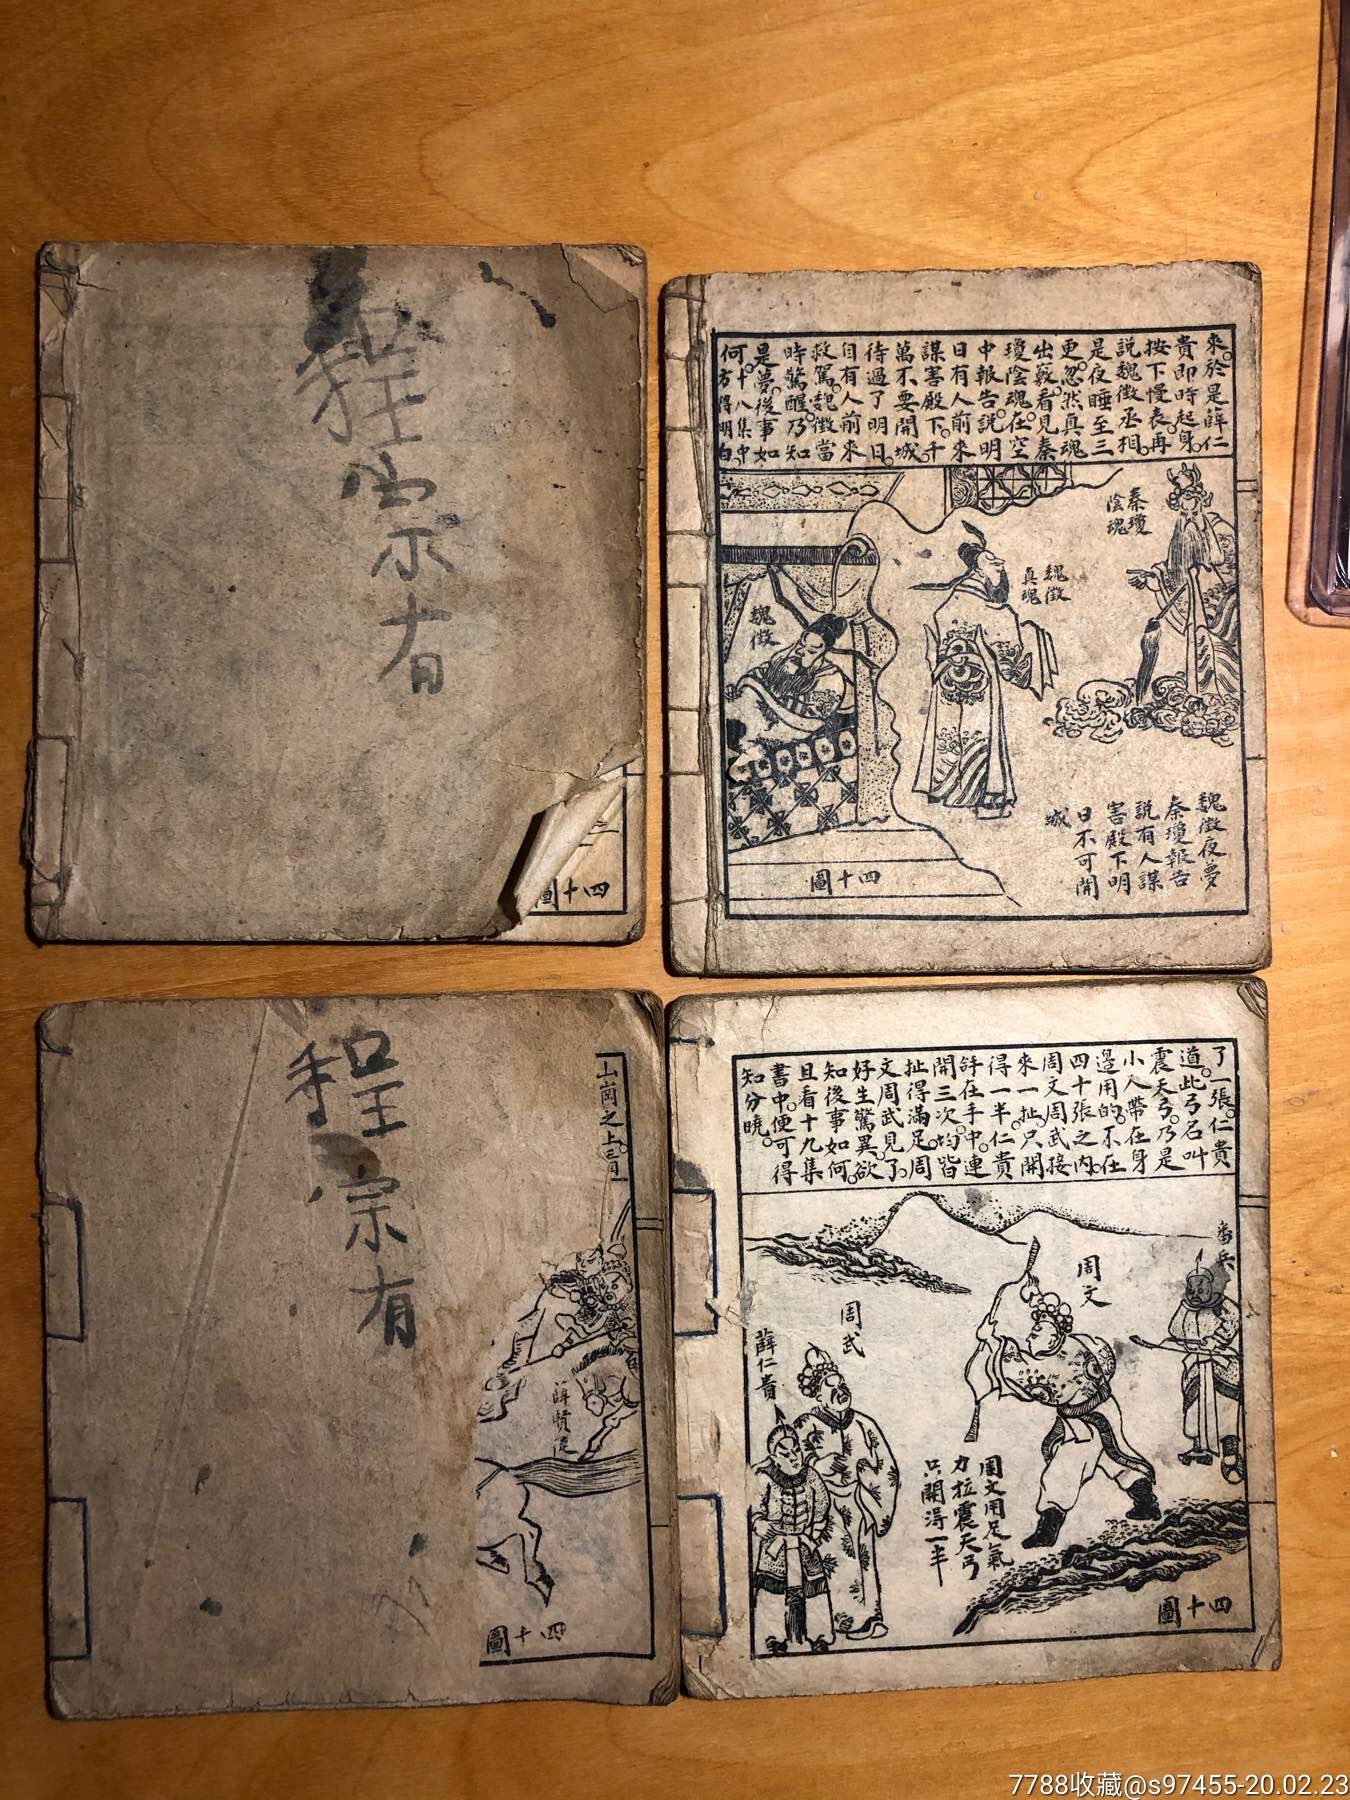 程宗有
四十圖
來於是薛仁
貴即時起身。
按下慢表。再
說魏徵丞相。
是夜睡至三
更。忽然真魂
出竅。看見秦
瓊陰魂。在空
中報告。說明
日有人前來
謀害殿下。千
萬不要開城。
待過了明日。
自有人前來
救駕。魏徵當
時驚醒。乃知
是夢。後事如
何。十八集中
方得明白。
秦瓊
陰魂
魏徵
真魂
魏徵
魏徵夜夢
秦瓊報告
說有人謀
害殿下明
日不可開
城
四十圖
程宗有
山崗之上
薛賢徒
四十圖
了一張。仁貴
道。此弓名叫
震天弓。乃是
小人帶在身
邊用的。不在
四十張之內。
周文周武接
來一扯。只開
得一半。仁貴
評在手中。連
開三次。均皆
扯得滿足。周
文周武見了。
好生驚異。欲
知後事如何。
且看十九集
書中。便可得
知分曉。
番兵
周文
周武
薛仁貴
周文用足氣
力拉震天弓
只開得一半
四十圖
7788收藏@s97455-20.02.23